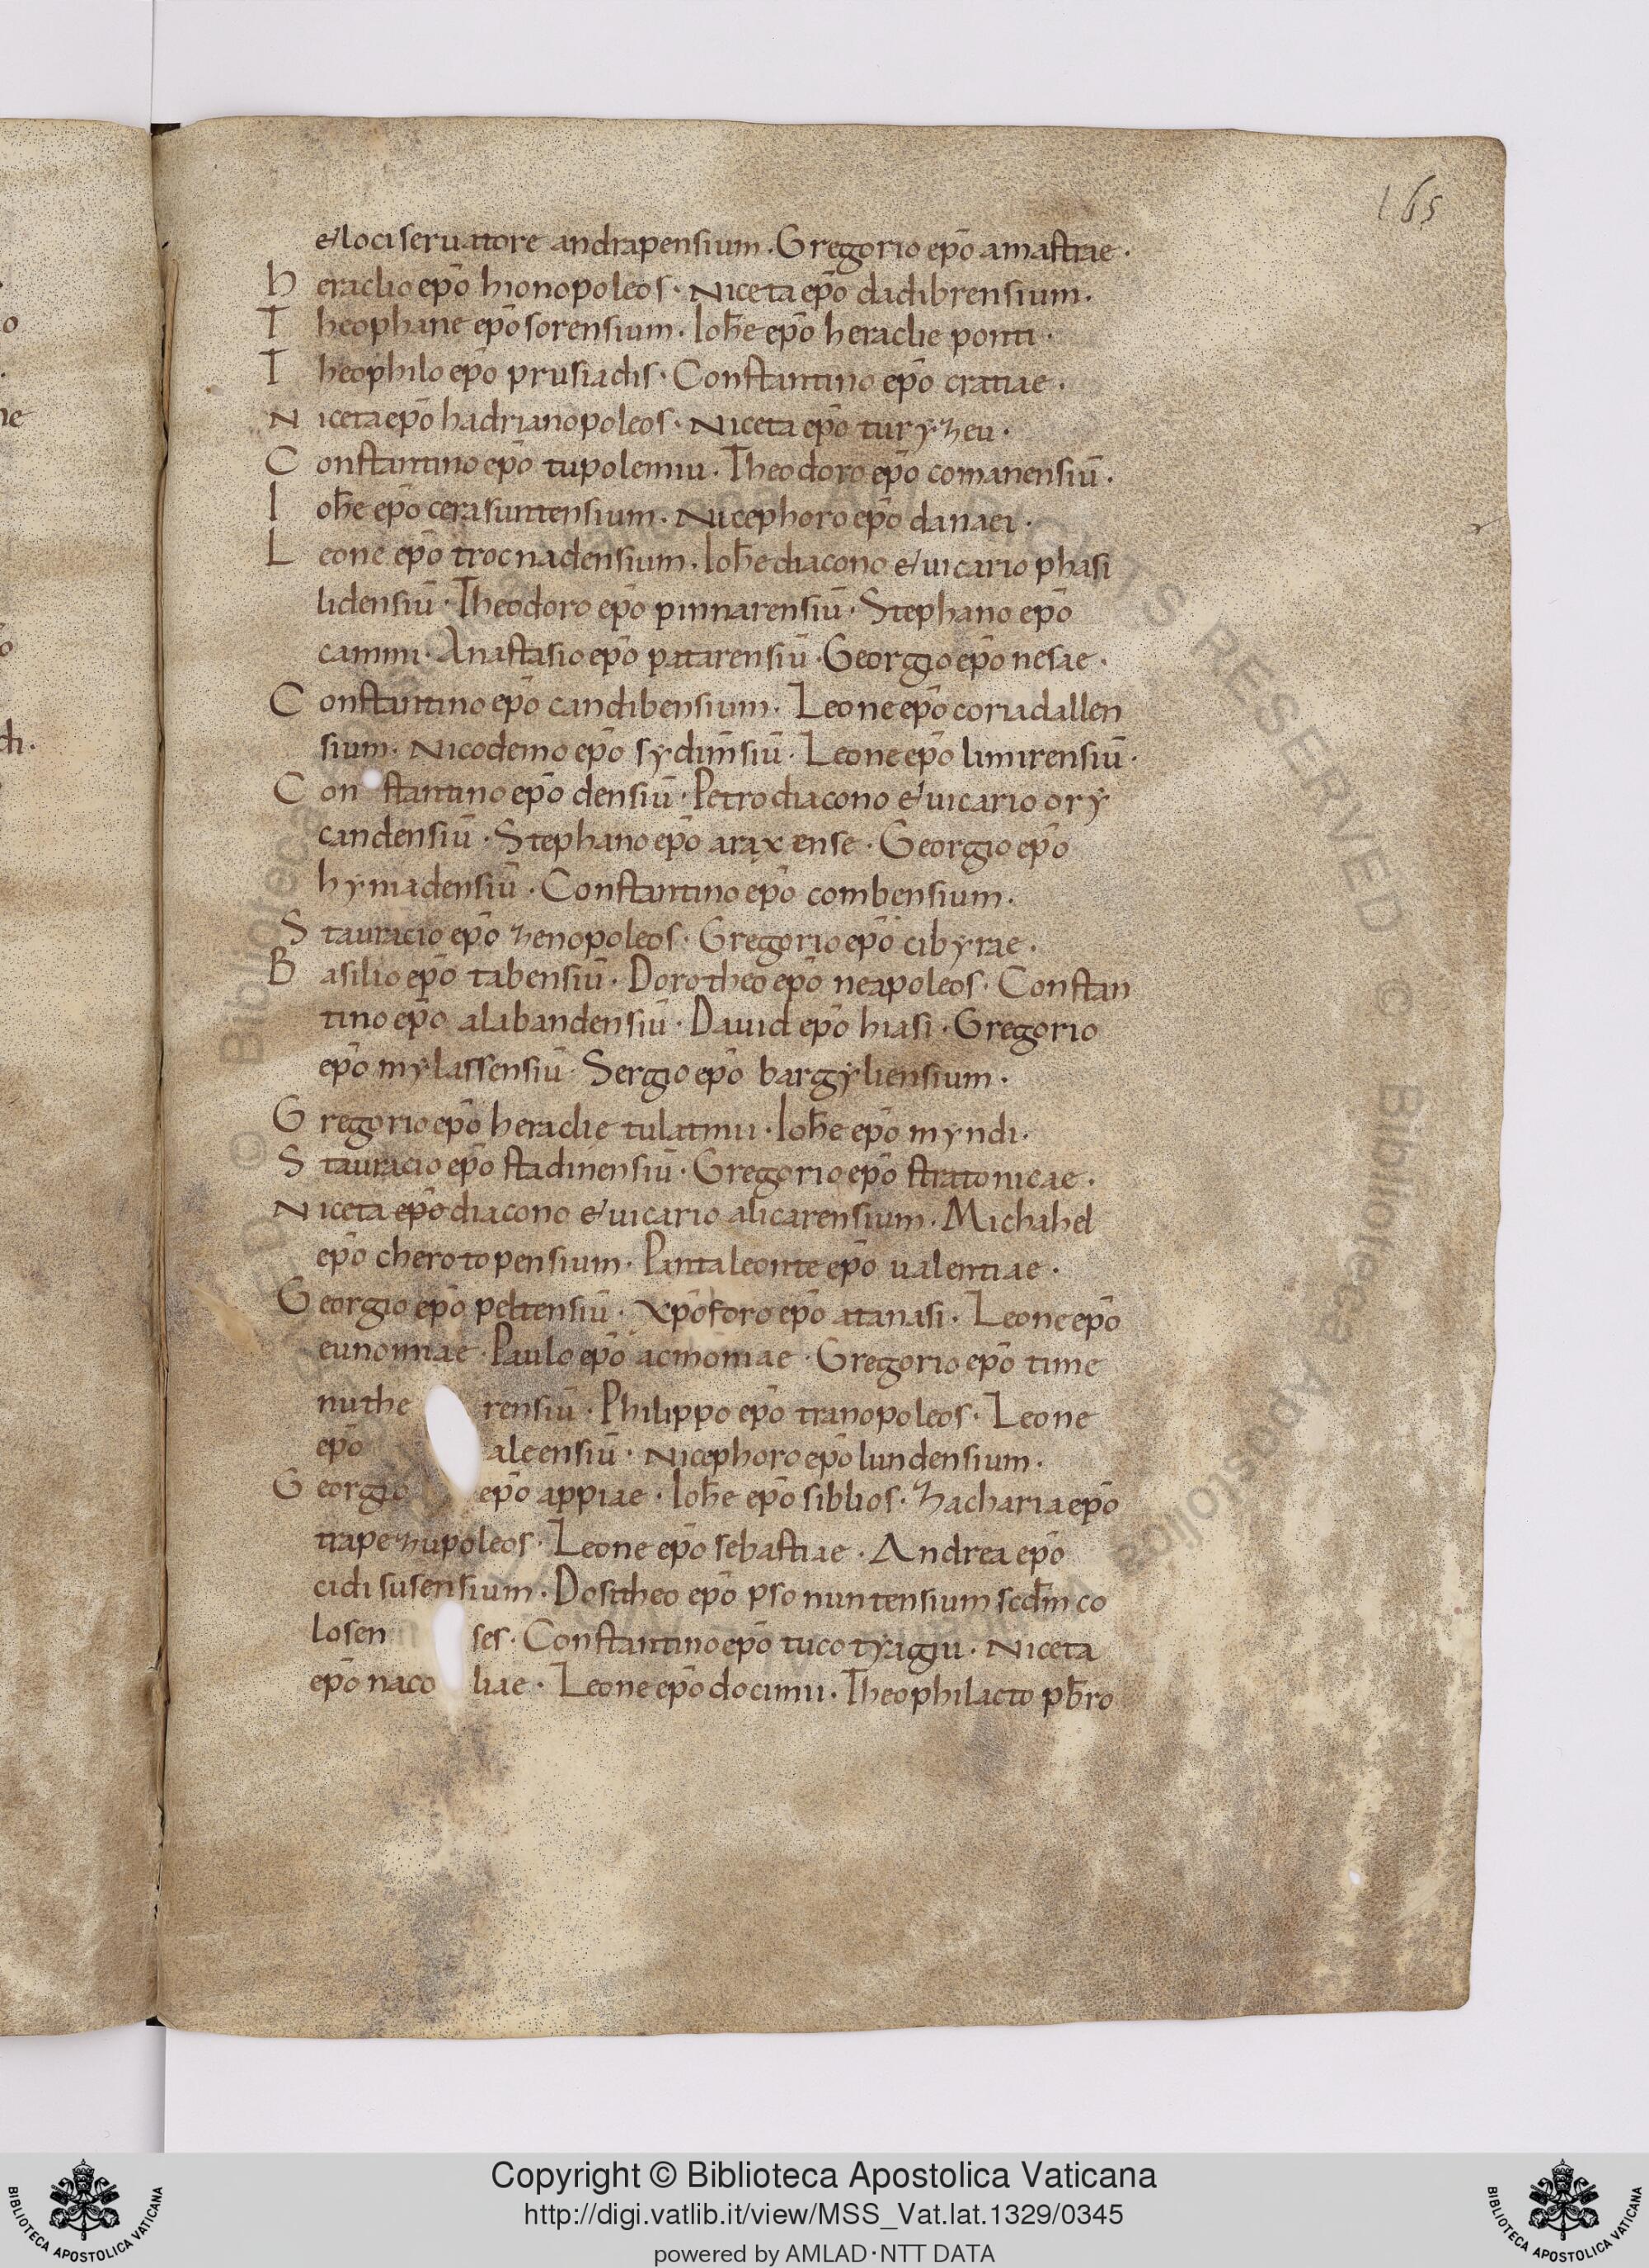 165
& lociseruatore andrapensium · Gregorio ep̄o amastrae ·
Heraclio ep̄o hionopoleos · Niceta ep̄o dadibrensium ·
Theophane ep̄o sorensium · Ioh̄e ep̄o heraclie ponti ·
Theophilo ep̄o prusiadis · Constantino ep̄o cratiae ·
Niceta ep̄o hadrianopoleos · Niceta ep̄o turyzeu ·
Constantino ep̄o tupolemiu · Theodoro ep̄o comanensiū ·
Ioh̄e ep̄o cerasuntensium · Nicephoro ep̄o danaei ·
Leone ep̄o trocnadensium · Ioh̄e diacono & uicario phasi
lidensiū · Theodoro ep̄o pinnarensiū · Stephano ep̄o
camni · Anastasio ep̄o patarensiū · Georgio ep̄o nesae ·
Constantino ep̄o candibensium · Leone ep̄o coriadallen
sium · Nicodemo ep̄o sydim̄siū · Leone ep̄o limirensiū ·
Constantino ep̄o densiū · Petro diacono & uicario ory
candensiū · Stephano ep̄o araxense · Georgio ep̄o
hyniadensiū · Constantino ep̄o combensium ·
Stauracio ep̄o zenopoleos · Gregorio ep̄o cibyrae ·
Basilio ep̄o tabensiū · Dorotheo ep̄o neapoleos · Constan
tino ep̄o alabandensiū · Dauid ep̄o hiasi · Gregorio
ep̄o mylassensiū · Sergio ep̄o bargyliensium ·
Gregorio ep̄o heraclie tulatmii · Ioh̄e ep̄o myndi ·
Stauracio ep̄o stadinensiū · Gregorio ep̄o stratonicae ·
Niceta ep̄o diacono & uicario alicarensium · Michahel
ep̄o cherotopensium · Pantaleonte ep̄o ualentiae ·
Georgio ep̄o peltensiū · Xp̄oforo ep̄o atanasi · Leone ep̄o
eunomiae · Paulo ep̄o acmoniae · Gregorio ep̄o time
nuthe rensiū · Philippo ep̄o tranopoleos · Leone
ep̄o alcensiū · Nicephoro ep̄o lundensium ·
Georgio ep̄o appiae · Ioh̄e ep̄o siblios · Zacharia ep̄o
trapezupoleos · Leone ep̄o sebastiae · Andrea ep̄o
cidisusensium · Dositheo ep̄o psonuntensium scd̄m co
losen ses · Constantino ep̄o tucotyagiu · Niceta
ep̄o naco liae · Leone ep̄o docimii · Theophilacto pb̄ro
Copyright © Biblioteca Apostolica Vaticana
http://digi.vatlib.it/view/MSS_Vat.lat.1329/0345
powered by AMLAD·NTT DATA
BIBLIOTECA APOSTOLICA VATICANA
BIBLIOTECA APOSTOLICA VATICANA